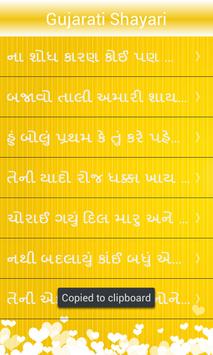 Gujarati Shayari
ના શોધ કારણ કોઈ પણ ...
બજાવો તાલી અમારી શાય...
હું બોલું પ્રથમ કે તું કરે પહે...
તેની યાદો રોજ ધક્કા ખાય ...
ચોરાઈ ગયું દિલ મારુ અને ...
નથી બદલાયું કાંઈ બધું એ...
તેની એ
Copied to clipboard
નોને...